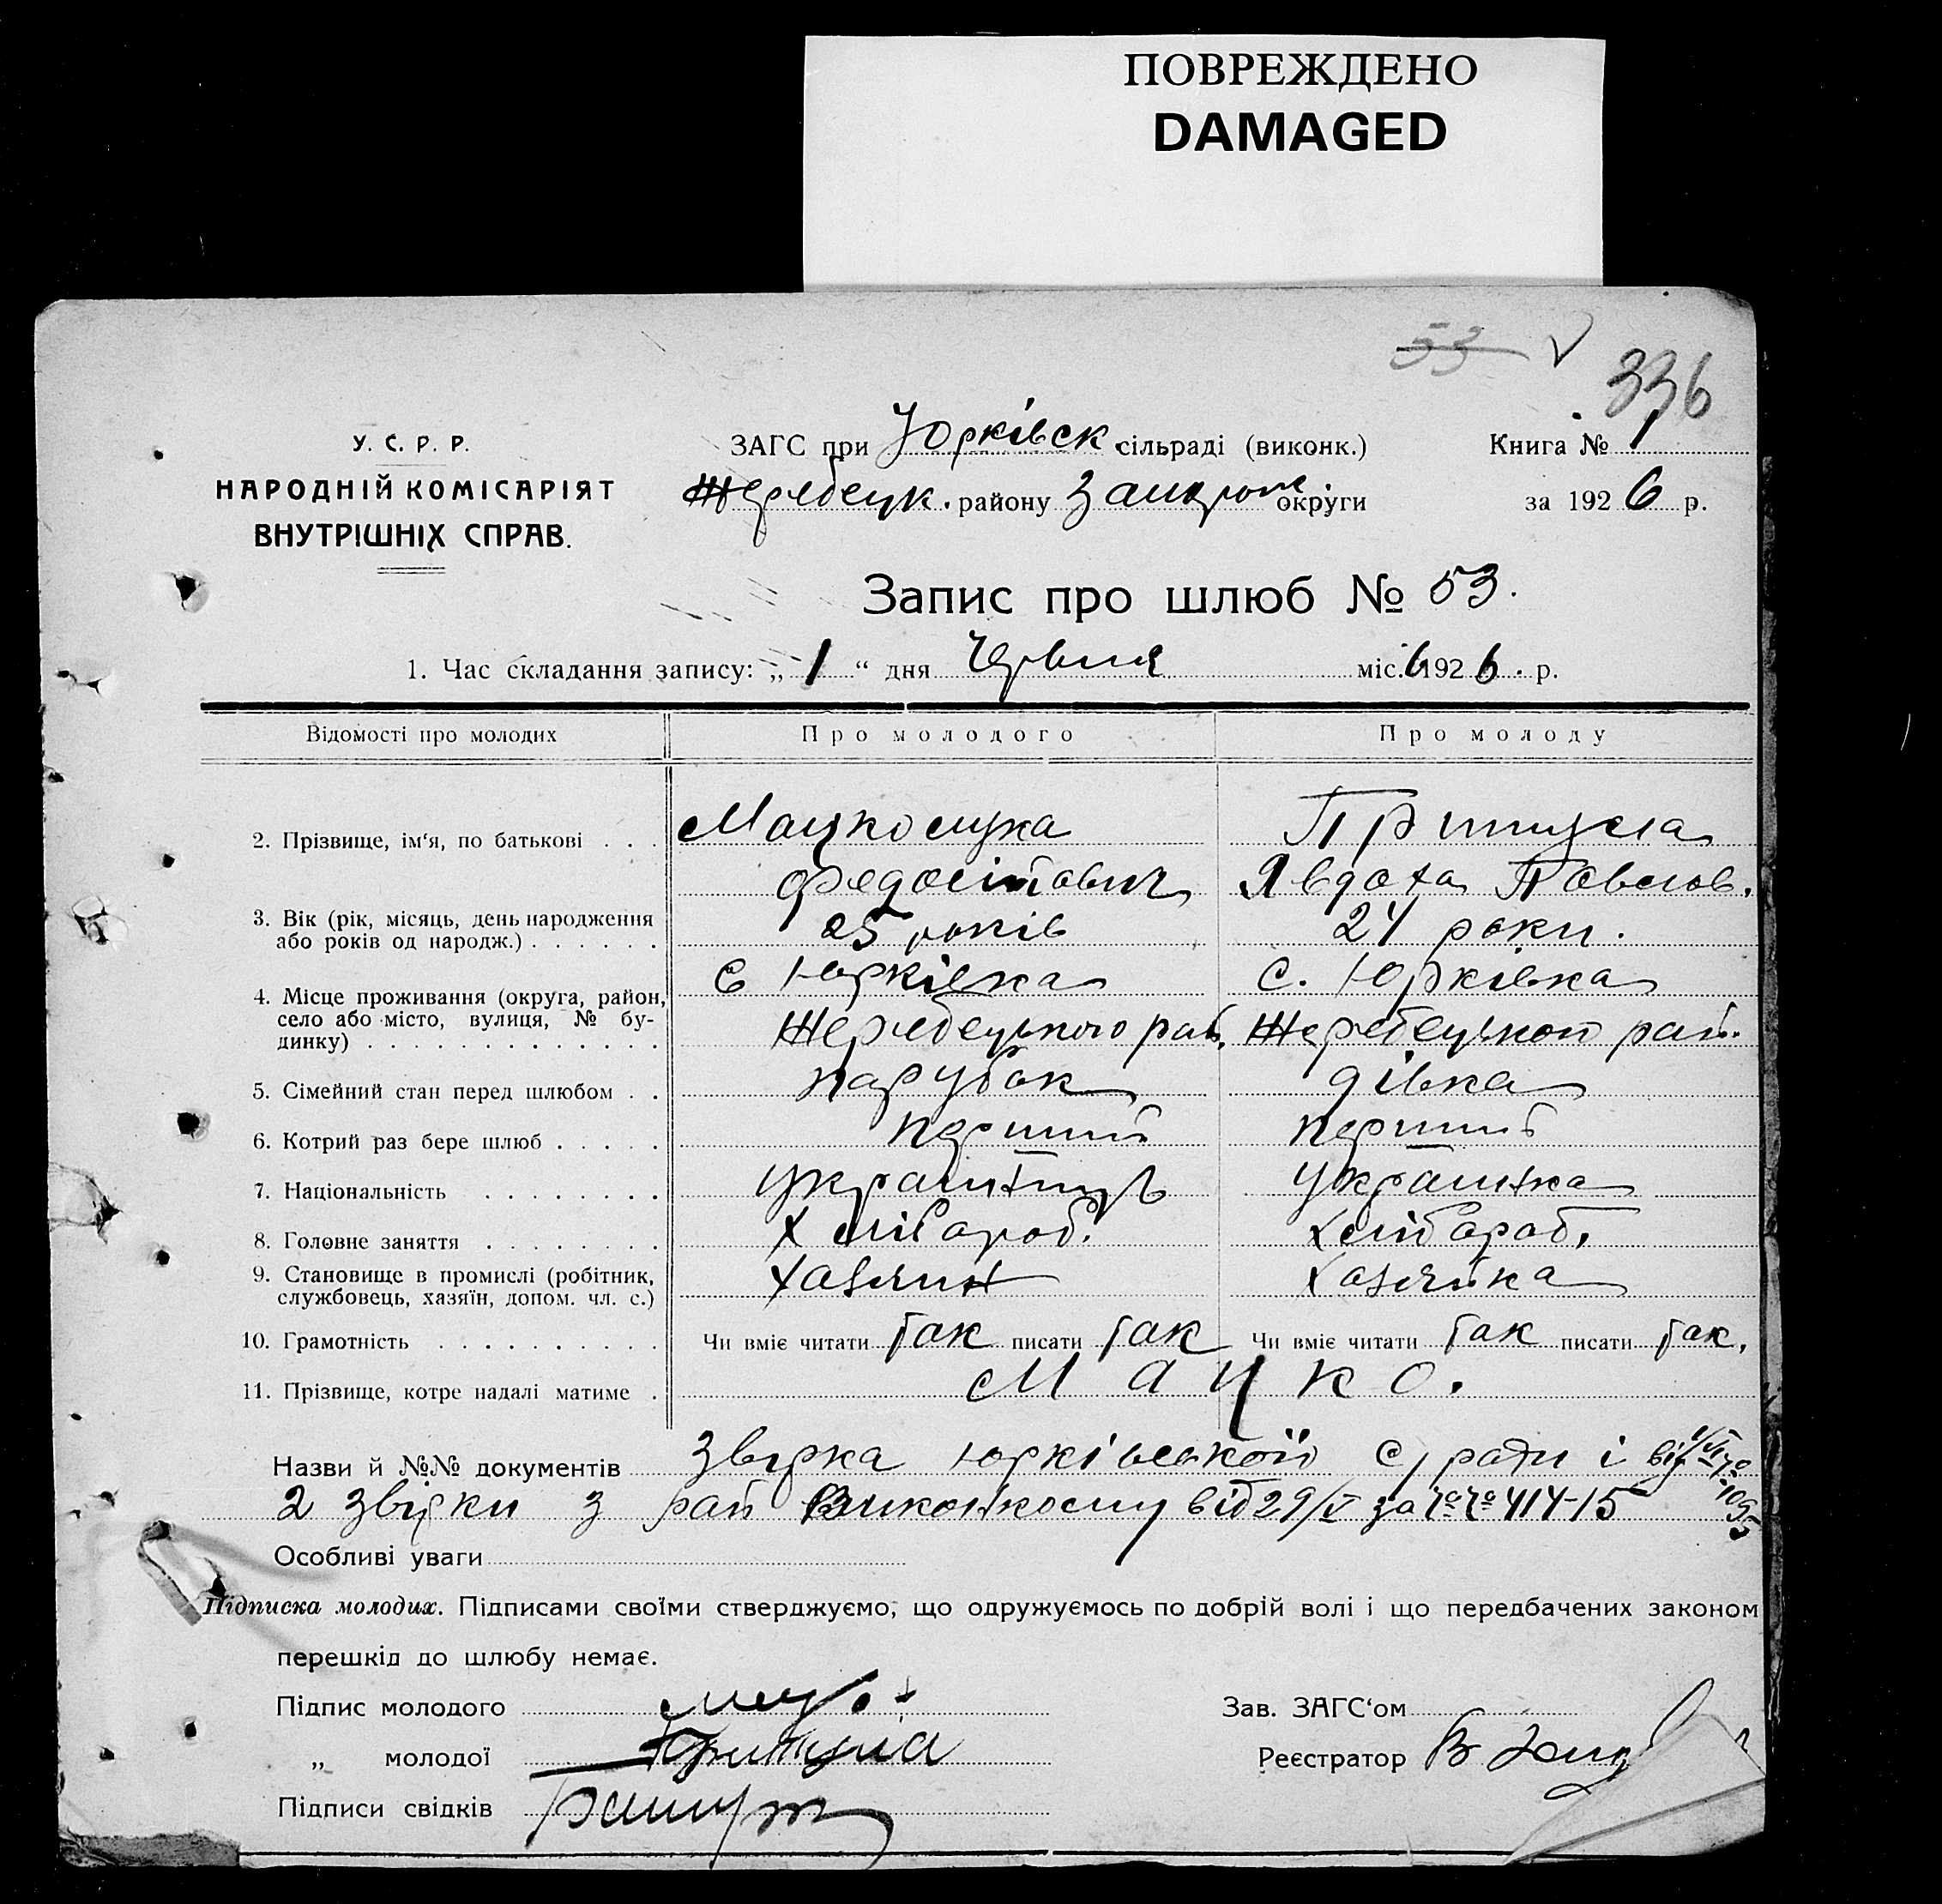 ПОВРЕЖДЕНО
DAMAGED
53 V
336
У. С. Р. Р.
НАРОДНІЙ КОМІСАРІЯТ
ВНУТРІШНІХ СПРАВ.
ЗАГС при Юрківск сільраді (виконк.)
Жеребецк. району округи
Книга № 1
за 1926 р.
Запис про шлюб № 53.
1. Час складання запису: „ 1 “ дня Червня міс. 6 1926. р.
Відомості про молодих Про молодого Про молоду
2. Прізвище, ім‘я, по батькові . . . Мацко Притула
Федосійович Явдоха Павлов.
3. Вік (рік, місяць, день народження
або років од народж.) . . . . . . 25 років 24 роки.
4. Місце проживання (округа, район,
село або місто, вулиця, № бу-
динку) . . . . . . . . . . . . .
с Юрківка с. Юрківка
Жеребецького рай. Жеребецького рай.
5. Сімейний стан перед шлюбом . . парубок дівка
6. Котрий раз бере шлюб . . . . . перший перший
7. Національність . . . . . . . . українець українка
8. Головне заняття . . . . . . . . хлібороб. хлібороб.
9. Становище в промислі (робітник,
службовець, хазяїн, допом. чл. с.) хазяин хазяйка
10. Грамотність . . . . . . . . . . Чи вміє читати так писати так Чи вміє читати так писати так.
11. Прізвище, котре надалі матиме . Мацко.
Назви й №№ документів Звірка Юрківської с/ ради і від
2 звірки з рай Виконкому від 29/V за №№ 414-15
Особливі уваги
Підписка молодих. Підписами своїми стверджуємо, що одружуємось по добрій волі і що передбачених законом
перешкід до шлюбу немає.
Підпис молодого
„ молодої Притула
Підписи свідків
Зав. ЗАГС‘ом
Реєстратор